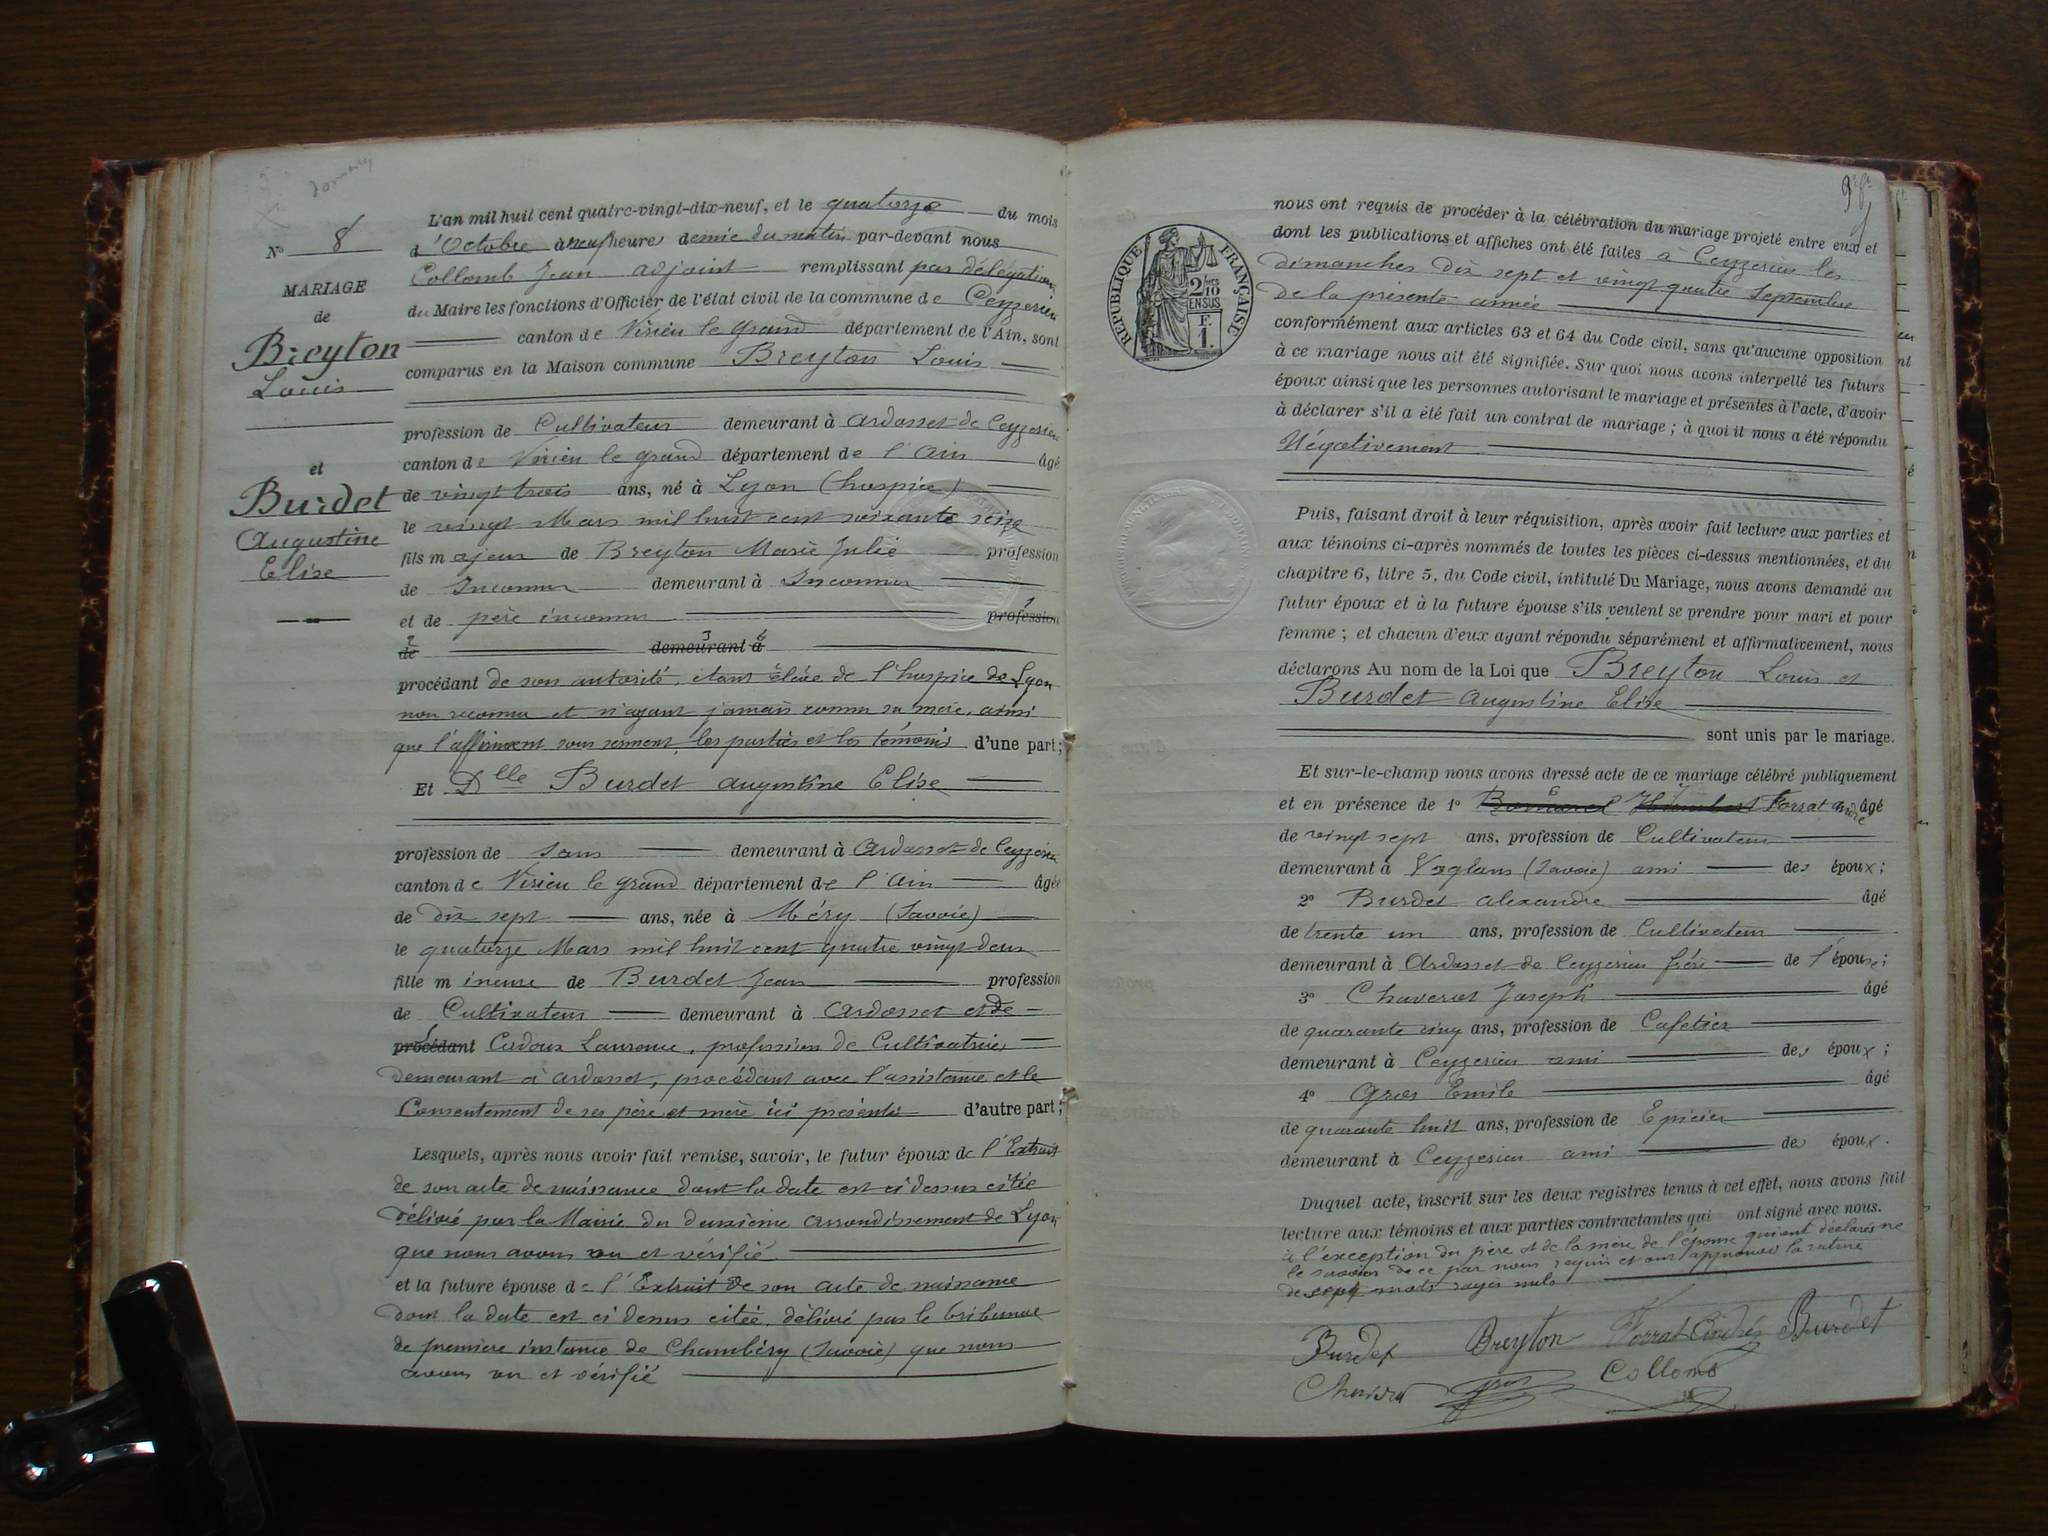 N° 8
MARIAGE
de
Breyton
Louis
et
Burdet
Augustine
Elise
L'an mil huit cent quatre-vingt-dix-neuf, et le quatorze du mois
d'Octobre à neuf heures demie du matin par-devant nous
Collomb Jean adjoint remplissant par délégation
du Maire les fonctions d'Officier de l'état civil de la commune de Ceyzerieu
canton de Virieu le grand département de l'Ain, sont
comparus en la Maison commune Breyton Louis
profession de Cultivateur demeurant à Ardosset de Ceyzerieu
canton de Virieu le grand département de l'Ain âgé
de vingt trois ans, né à Lyon (hospice)
le vingt Mars mil huit cent soixante seize
fils majeur de Breyton Marie Julie profession
de Inconnu demeurant à Inconnu
et de père inconnu profession
de demeurant à
procédant de son autorité, étant élève de l'hospice de Lyon
non reconnu et n'ayant jamais connu sa mère, ainsi
que l'affirment sous serment, les parties et les témoins d'une part;
Et Dlle Burdet Augustine Elise
profession de sans demeurant à Ardosset de Ceyzerieu
canton de Virieu le grand département de l'Ain âgée
de dix sept ans, née à Méry (Savoie)
le quatorze Mars mil huit cent quatre vingt deux
fille mineure de Burdet Jean profession
de Cultivateur demeurant à Ardosset et de
procédant Cadoux Laurence, profession de Cultivatrice
demeurant à Ardosset, procédant avec l'assistance et le
Consentement de ses père et mère ici présents d'autre part;
Lesquels, après nous avoir fait remise, savoir, le futur époux de l'Extrait
de son acte de naissance dont la date est ci dessus citée
délivré par la Mairie du deuxième arrondissement de Lyon
que nous avons vu et vérifié
et la future épouse de l'Extrait de son acte de naissance
dont la date est ci dessus citée, délivré par le tribunal
de première instance de Chambéry (Savoie) que nous
avons vu et vérifié
RÉPUBLIQUE FRANÇAISE
2/10 EN SUS
F. 1.
nous ont requis de procéder à la célébration du mariage projeté entre eux et
dont les publications et affiches ont été faites à Ceyzerieu les
dimanches dix sept et vingt quatre Septembre
de la présente année
conformément aux articles 63 et 64 du Code civil, sans qu'aucune opposition
à ce mariage nous ait été signifiée. Sur quoi nous avons interpellé les futurs
époux ainsi que les personnes autorisant le mariage et présentes à l'acte, d'avoir
à déclarer s'il a été fait un contrat de mariage; à quoi il nous a été répondu
Négativement
Puis, faisant droit à leur réquisition, après avoir fait lecture aux parties et
aux témoins ci-après nommés de toutes les pièces ci-dessus mentionnées, et du
chapitre 6, titre 5, du Code civil, intitulé Du Mariage, nous avons demandé au
futur époux et à la future épouse s'ils veulent se prendre pour mari et pour
femme; et chacun d'eux ayant répondu séparément et affirmativement, nous
déclarons Au nom de la Loi que Breyton Louis et
Burdet Augustine Elise
sont unis par le mariage.
Et sur-le-champ nous avons dressé acte de ce mariage célébré publiquement
et en présence de 1° Forrat André âgé
de vingt sept ans, profession de Cultivateur
demeurant à Voglans (Savoie) ami des époux;
2° Burdet Alexandre âgé
de trente un ans, profession de Cultivateur
demeurant à Ardosset de Ceyzerieu frère de l'épouse;
3° Chaverot Joseph âgé
de quarante cinq ans, profession de Cafetier
demeurant à Ceyzerieu ami des époux;
4° Gros Emile âgé
de quarante huit ans, profession de Epicier
demeurant à Ceyzerieu ami des époux.
Duquel acte, inscrit sur les deux registres tenus à cet effet, nous avons fait
lecture aux témoins et aux parties contractantes qui ont signé avec nous.
à l'exception du père et de la mère de l'épouse qui ont déclaré ne
le savoir de ce par nous requis et ont approuvé la rature
de sept mots rayés nuls
Burdet Breyton Forrat André Burdet
Gros Collomb